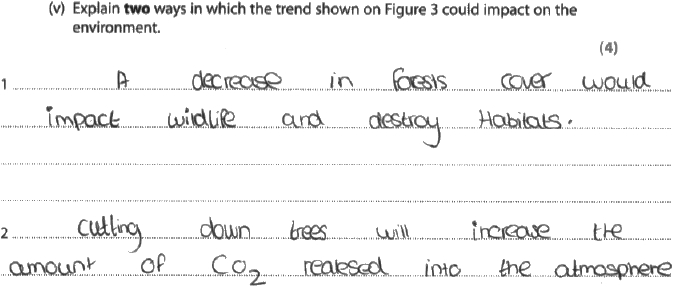 (v) Explain two ways in which the trend shown on Figure 3 could impact on the
environment.
(4)
1 A decrease in forests cover would
impact wildlife and destroy Habitats.
2 cutting down trees will increase the
amount of CO2 realesed into the atmosphere